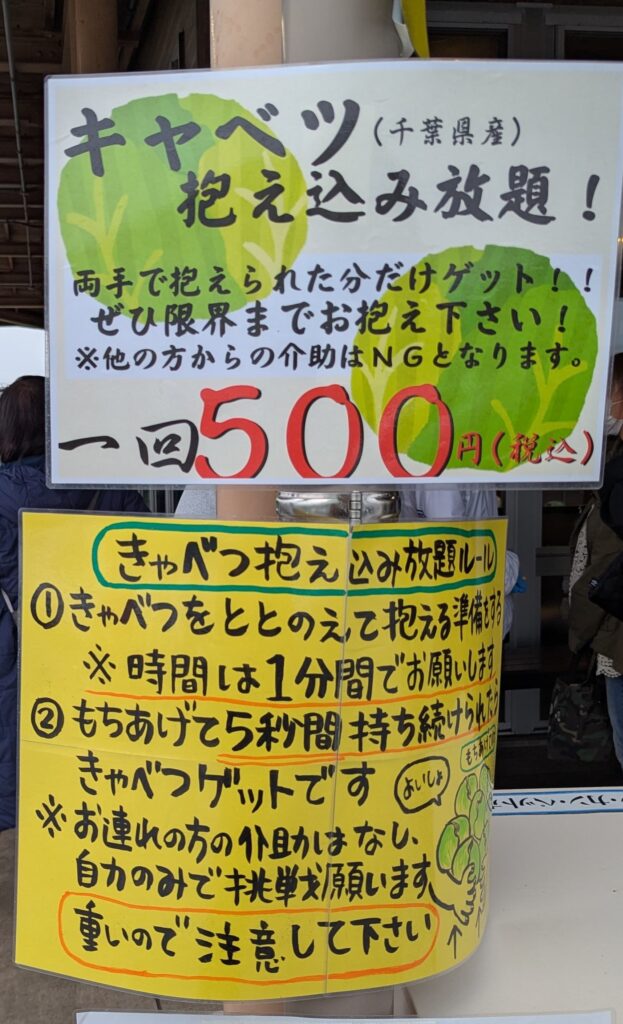 キャベツ(千葉県産)
抱え込み放題！
両手で抱えられた分だけゲット！！
ぜひ限界までお抱え下さい！
※他の方からの介助はNGとなります。
一回500円(税込)
きゃべつ抱え込み放題ルール
①きゃべつをととのえて抱える準備をする
※時間は1分間でお願いします
②もちあげて5秒間持ち続けられたら
きゃべつゲットです
もちあげて
よいしょ
※お連れの方の介助はなし、
自力のみで挑戦願います
重いので注意して下さい